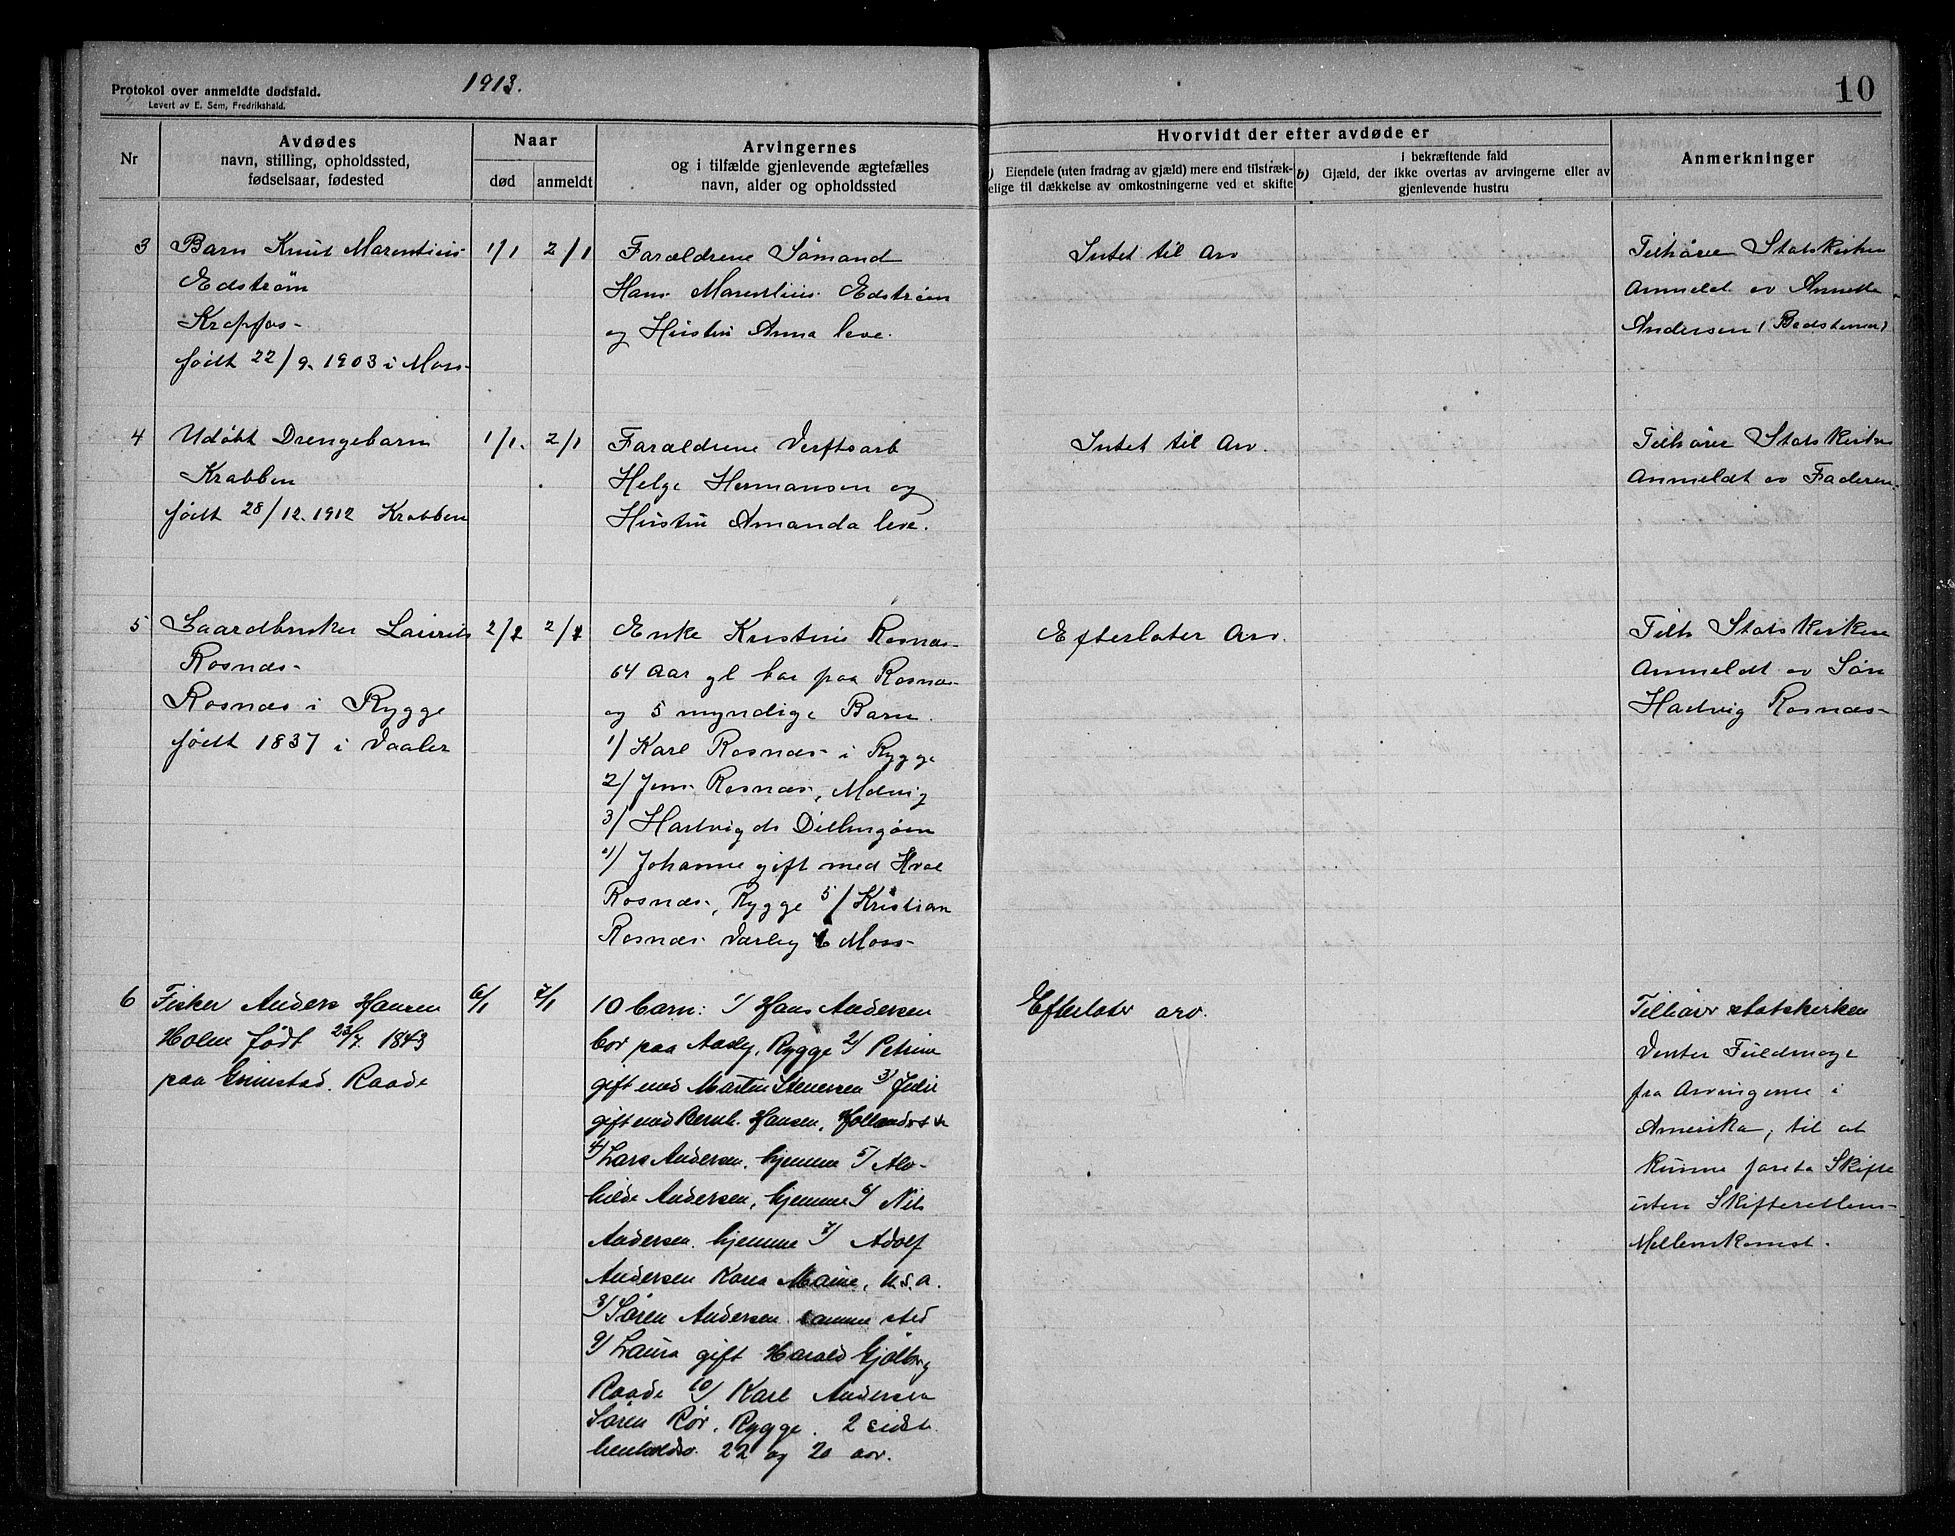 Protokol over anmeldte dødsfald.
Levert av E. Sem, Fredrikshald.
1913.
10
Nr
Avdødes
navn, stilling, opholdssted,
fødselsaar, fødested
Naar
død
anmeldt
Arvingernes
og i tilfælde gjenlevende ægtefælles
navn, alder og opholdssted
Hvorvidt der efter avdøde er
Eiendele (uten fradrag av gjæld) mere end tilstræk-
kelige til dækkelse av omkostningerne ved et skifte
i bekræftende fald
b) Gjæld, der ikke overtas av arvingerne eller av
gjenlevende hustru
Anmerkninger
3
Barn Knut Marentius
Edstrøm
Krapfos-
født 22/9. 1903 i Moss-
1/1
2/1
Forældrene Sømand
Hans Marentius Edstrøm
og Hustru Anna leve.
Intet til Arv
Tilhører Statskirken
Anmeldt av Annette
Andersen (Bedstemor)
4
Udøbt Drengebarn
Krabben
født 28/12. 1912 Krabben
1/1.
2/1
Forældrene Verftsarb
Helge Hermansen og
Hustru Amanda leve.
Intet til Arv.
Tilhører Statskirken
Anmeldt av Faderen.
5
Gaardbruker Laurits
Rosnæs-
Rosnæs i Rygge
født 1837 i Vaaler
2/1
2/1
Enke Kristine Rosnæs-
64 aar gl bor paa Rosnæs-
og 5 myndige Barn.
1/ Karl Rosnæs i Rygge
2/ Jens Rosnæs, Melvig
3/ Hartvig ds Dillingøen
4/ Johanne gift med Hval
Rosnæs, Rygge 5/ Kristian
Rosnæs Varley Moss-
Efterlater Arv.
Tilh Statskirken
Anmeldt av Søn
Hartvig Rosnæs-
6
Fisker Anders Hansen
Holm født 23/7. 1843
paa Grimstad. Raade
6/1
7/1
10 barn: 1/ Hans Andersen
bor paa Aasly, Rygge 2/ Petrine
gift med Martin Stenersen 3/
gift med Bernh. Hansen,
4/ Lars Andersen, hjemme 5/ Alv-
hilde Andersen, hjemme 6/ Nils
Andersen. hjemme 7/ Adolf
Andersen Maine, U.S.A.
8/ Søren Andersen samme sted
9/ Laura gift Harald Gjølberg
Raade 10/ Karl Andersen
Søren Rør, Rygge. 2 sidst
henholdsv. 22 og 20 aar.
Efterlater arv.
Tilhører statskirken
Venter Fuldmagt
fra Arvingerne i
Amerika, til at
kunne foreta Skifte
uten Skifterettens-
Mellemkomst.